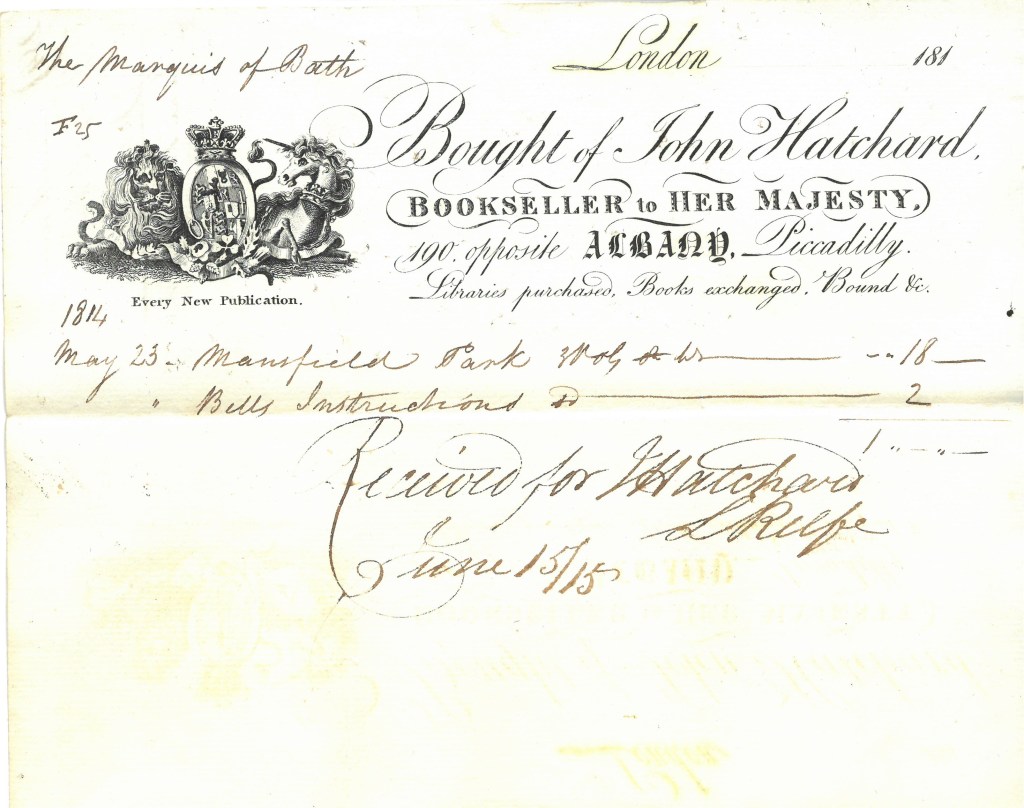 The Marquis of Bath
London 181
F 25
Bought of John Hatchard,
BOOKSELLER to HER MAJESTY,
190, opposite ALBANY, Piccadilly.
Libraries purchased, Books exchanged, Bound &c.
Every New Publication.
1814
May 23 Mansfield Park 3 Vols 18 —
" Bells Instructions 2
1 " — " —
Received for J Hatchard
June 15/15